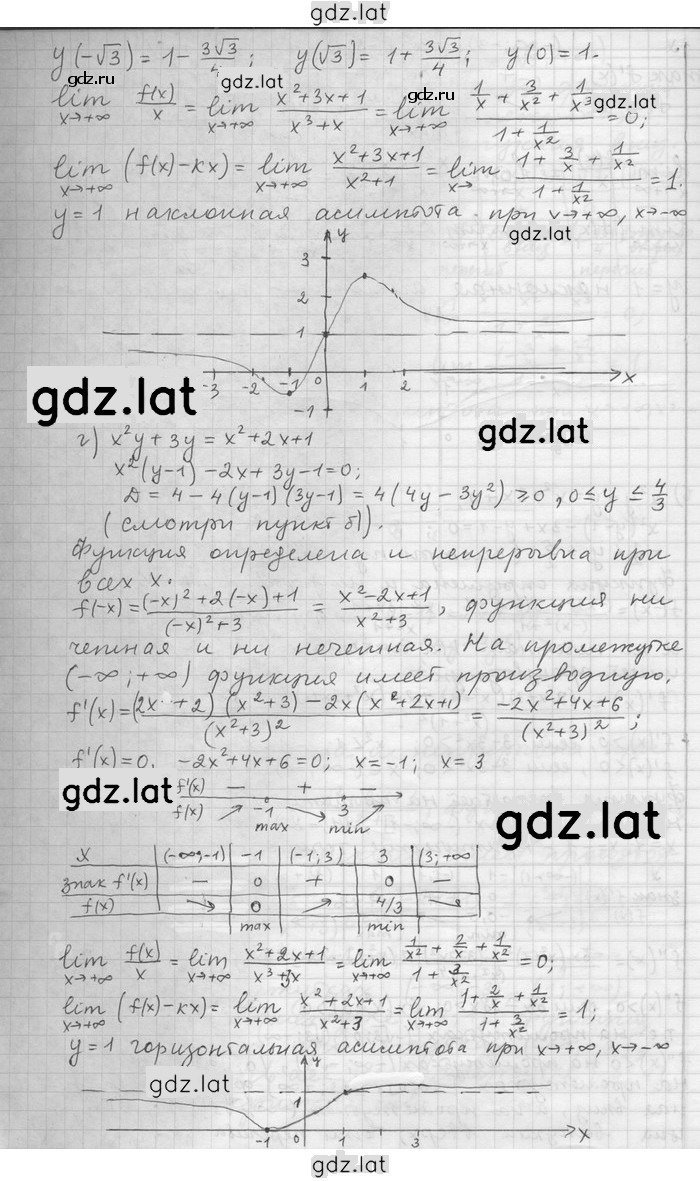 gdz.lat
y(-√3) = 1 - 3√3/4; y(√3) = 1 + 3√3/4; y(0) = 1.
gdz.lat
gdz.lat
lim x→+∞ f(x)/x = lim x→+∞ (x²+3x+1)/(x³+x) = lim x→+∞ (1/x + 3/x² + 1/x³)/(1 + 1/x²) = 0;
gdz.lat
lim x→+∞ (f(x)-кx) = lim x→+∞ (x²+3x+1)/(x²+1) = lim x→ (1 + 3/x + 1/x²)/(1 + 1/x²) = 1.
y=1 наклонная асимптота при x→+∞, x→-∞
gdz.lat
y
3
2
1
-3 -2 -1 0 1 2 x
-1
gdz.lat
gdz.lat
г) x²y + 3y = x² + 2x + 1
x²(y-1) - 2x + 3y - 1 = 0;
D = 4 - 4(y-1)(3y-1) = 4(4y - 3y²) ⩾ 0, 0 ≤ y ≤ 4/3
(смотри пункт б)).
Функция определена и непрерывна при
всех x.
f(-x) = ((-x)² + 2(-x) + 1)/((-x)² + 3) = (x² - 2x + 1)/(x² + 3), функция ни
четная и ни нечетная. На промежутке
(-∞; +∞) функция имеет производную.
f'(x) = ((2x + 2)(x²+3) - 2x(x²+2x+1))/(x²+3)² = (-2x²+4x+6)/(x²+3)²;
f'(x)=0. -2x²+4x+6=0; x=-1; x=3
gdz.lat
f'(x) - + -
f(x) -1 3
max min
gdz.lat
x (-∞;-1) -1 (-1;3) 3 (3;+∞
знак f'(x) - 0 + 0 -
f(x) ↘ 0 ↗ 4/3 ↘
max min
lim x→+∞ f(x)/x = lim x→+∞ (x²+2x+1)/(x³+3x) = lim x→+∞ (1/x² + 2/x + 1/x²)/(1 + 3/x²) = 0;
lim x→+∞ (f(x)-кx) = lim x→+∞ (x²+2x+1)/(x²+3) = lim x→+∞ (1 + 2/x + 1/x²)/(1 + 3/x²) = 1;
y=1 горизонтальная асимптота при x→+∞, x→-∞
gdz.lat
y
1
-1 0 1 3 x
gdz.lat